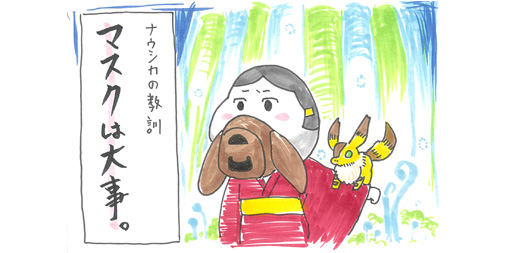 ナウシカの教訓
マスクは大事。